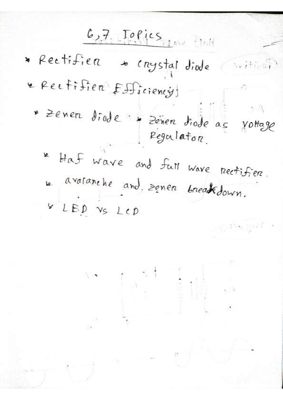 6,7 Topics
* Rectifier * Crystal diode
* Rectifier Efficiency
* Zener diode * Zener diode as voltage
Regulator.
* Haf wave and full wave rectifier.
* avalanche and zener breakdown.
* LED vs LCD